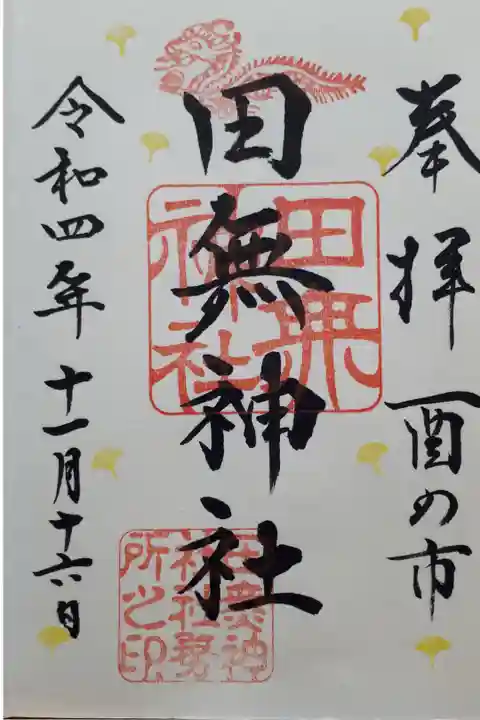 奉拝 酉の市
田無神社
田無神社
田無神社務所之印
令和四年 十一月十六日